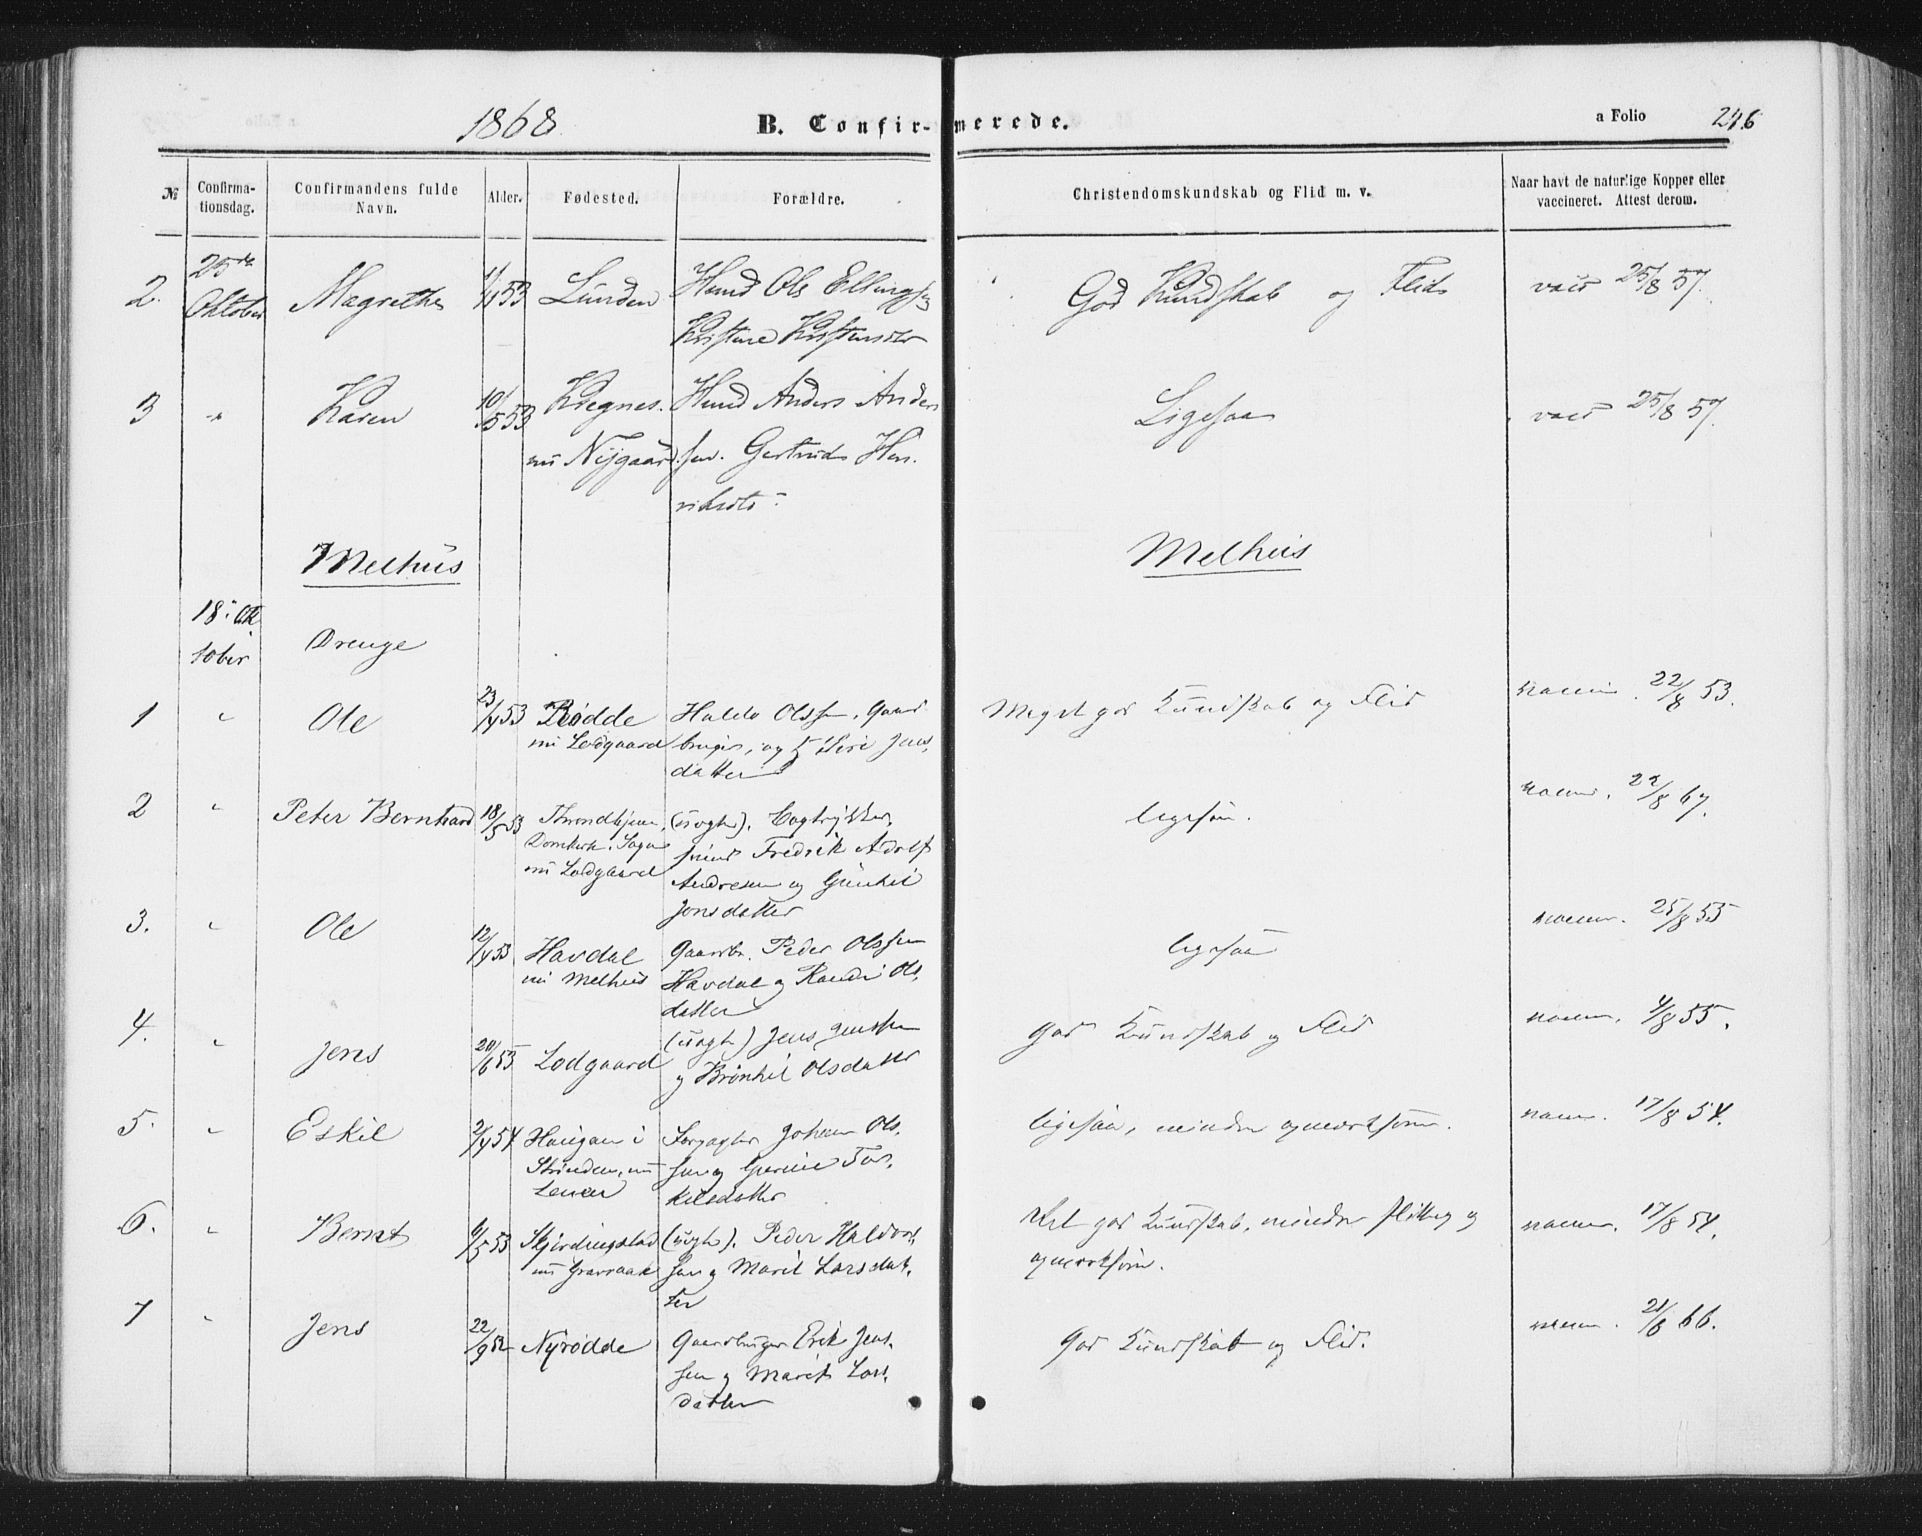 1868
B. Confir-merede.
a Folio 246
№ Confirma-tionsdag. Confirmandens fulde Navn. Alder. Fødested. Forældre. Christendomskundskab og Flid m. v. Naar havt de naturlige Kopper eller vaccineret. Attest derom.
2. 25de Oktober Magrethe 1/1 53 Lunden
Hmd Ole Ellingsen
Kristine Kristensdtr
God Kundskab og Flid vacc 25/8 57.
3 " Karen 10/5 53 Kregnes.
nu Nygaard.
Hmd Anders Anders
sen. Gertrud Hen.
riksdt:
Ligesaa vacc 25/8 57.
Melhus
Melhus
18: Ok
tober
Drenge
1 " Ole 23/4 53 Rødde
nu Lodgaard
Haldo Olssen. Gaard
bruger, og K. Siri Jens.
datter
Meget god Kundskab og Flid vaccin. 22/8 53.
2 " Peter Bernhard 18/5 53 Throndhjem,
Domkirk. Sogn
nu Lodgaard
(uægte). Bogtrykker.
svend Fredrik Adolf
Andresen og Gunhil
Jonsdatter
ligesaa. vaccin. 22/8 67.
3. " Ole 12/4 53 Havdal
nu Melhus
Gaardbr. Peder Olssen
Havdal og Randi Ols.
datter
ligesaa vaccin. 25/8 53
4. " Jens 20/6 53 Lodgaard
(uægte) Jens Jenssen
og Brønhil Olsdatter
god Kundskab og Flid vaccin. 4/8 55.
5. " Eskil 2/4 54 Haugan i
Strinden, nu
Leren
Forpagter Johan Ols.
sen og Gurine Tor.
kilsdatter
ligesaa, mindre opmærksom. vaccin. 17/8 54.
6. " Bernt 6/5 53 Skjerdingstad
nu Gravraak
(uægte). Peder Haldor.
sen og Marit Larsdat.
ter
Ret god Kundskab, mindre flittig og
opmærksom.
vaccin. 17/8 54.
7 " Jens 22/9 52 Nyrødde
Gaardbruger Erik Jens.
sen og Marit Lars.
datter
God Kundskab og Flid. vaccin. 21/8 66.